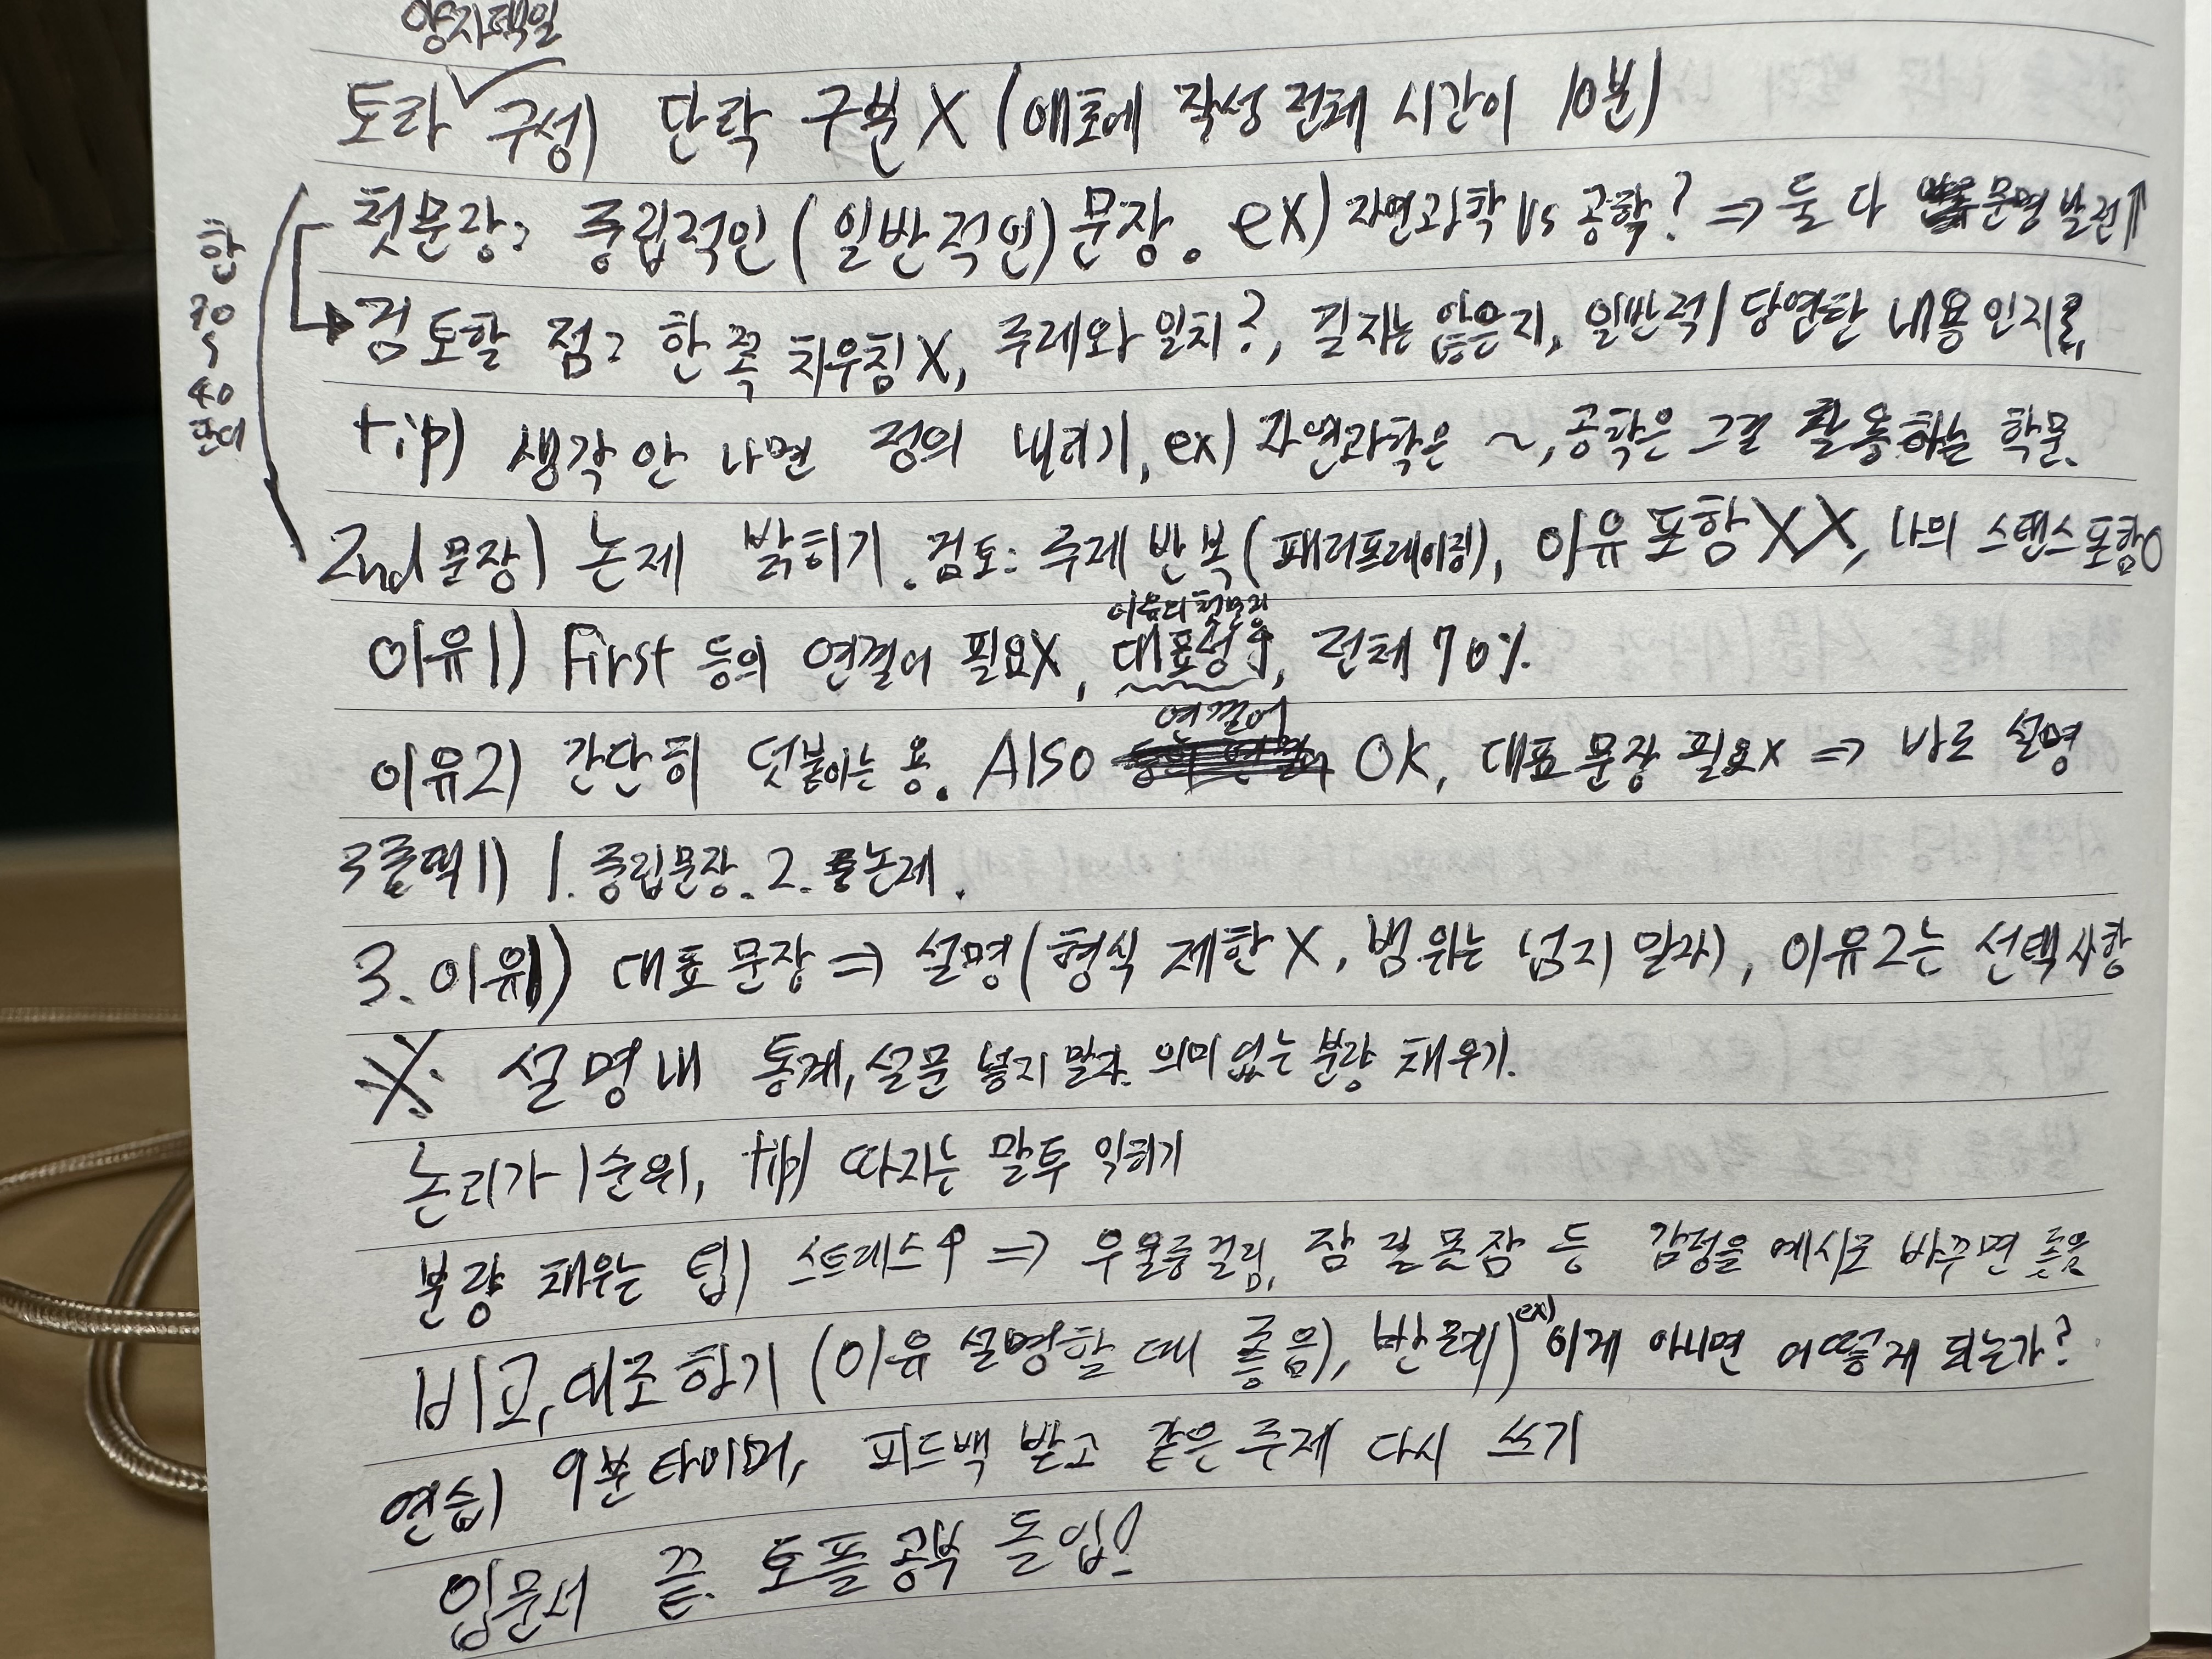 양자택일
토라 구성) 단락 구분 X (애초에 작성 전체 시간이 10분)
첫문장: 중립적인 (일반적인) 문장. ex) 자연과학 vs 공학? ⇒ 둘 다 문명 발전↑
검토할 점: 한 쪽 치우침X, 주제와 일치?, 길지는 않은지, 일반적/당연한 내용인지
tip) 생각 안 나면 정의 내리기, ex) 자연과학은 ~, 공학은 그걸 활용하는 학문.
합
30
~
40
단어
2nd 문장) 논제 밝히기. 검토: 주제 반복(패러프레이징), 이유 포함XX, 나의 스탠스 포함O
이유1) First 등의 연결어 필요X, 대표성↑, 전체 70%.
연결어
이유2) 간단히 덧붙이는 용. Also OK, 대표 문장 필요X ⇒ 바로 설명
3줄떡 1) 1. 중립문장. 2. 논제.
3. 이유1) 대표 문장 ⇒ 설명(형식 제한X, 범위는 넘지 말자), 이유2는 선택사항
※ 설명 내 통계, 설문 넣지 말자. 의미 없는 분량 채우기.
논리가 1순위, tip) 따지는 말투 익히기
분량 채우는 팁) 스트레스↑ ⇒ 우울증 걸림, 잠 잘 못잠 등 감정을 예시로 바꾸면 좋음
비교, 대조하기 (이유 설명할 때 좋음), 반례) ex) 이게 아니면 어떻게 되는가?
연습) 9분 타이머, 피드백 받고 같은 주제 다시 쓰기
입문서 끝. 토플 공부 돌입!